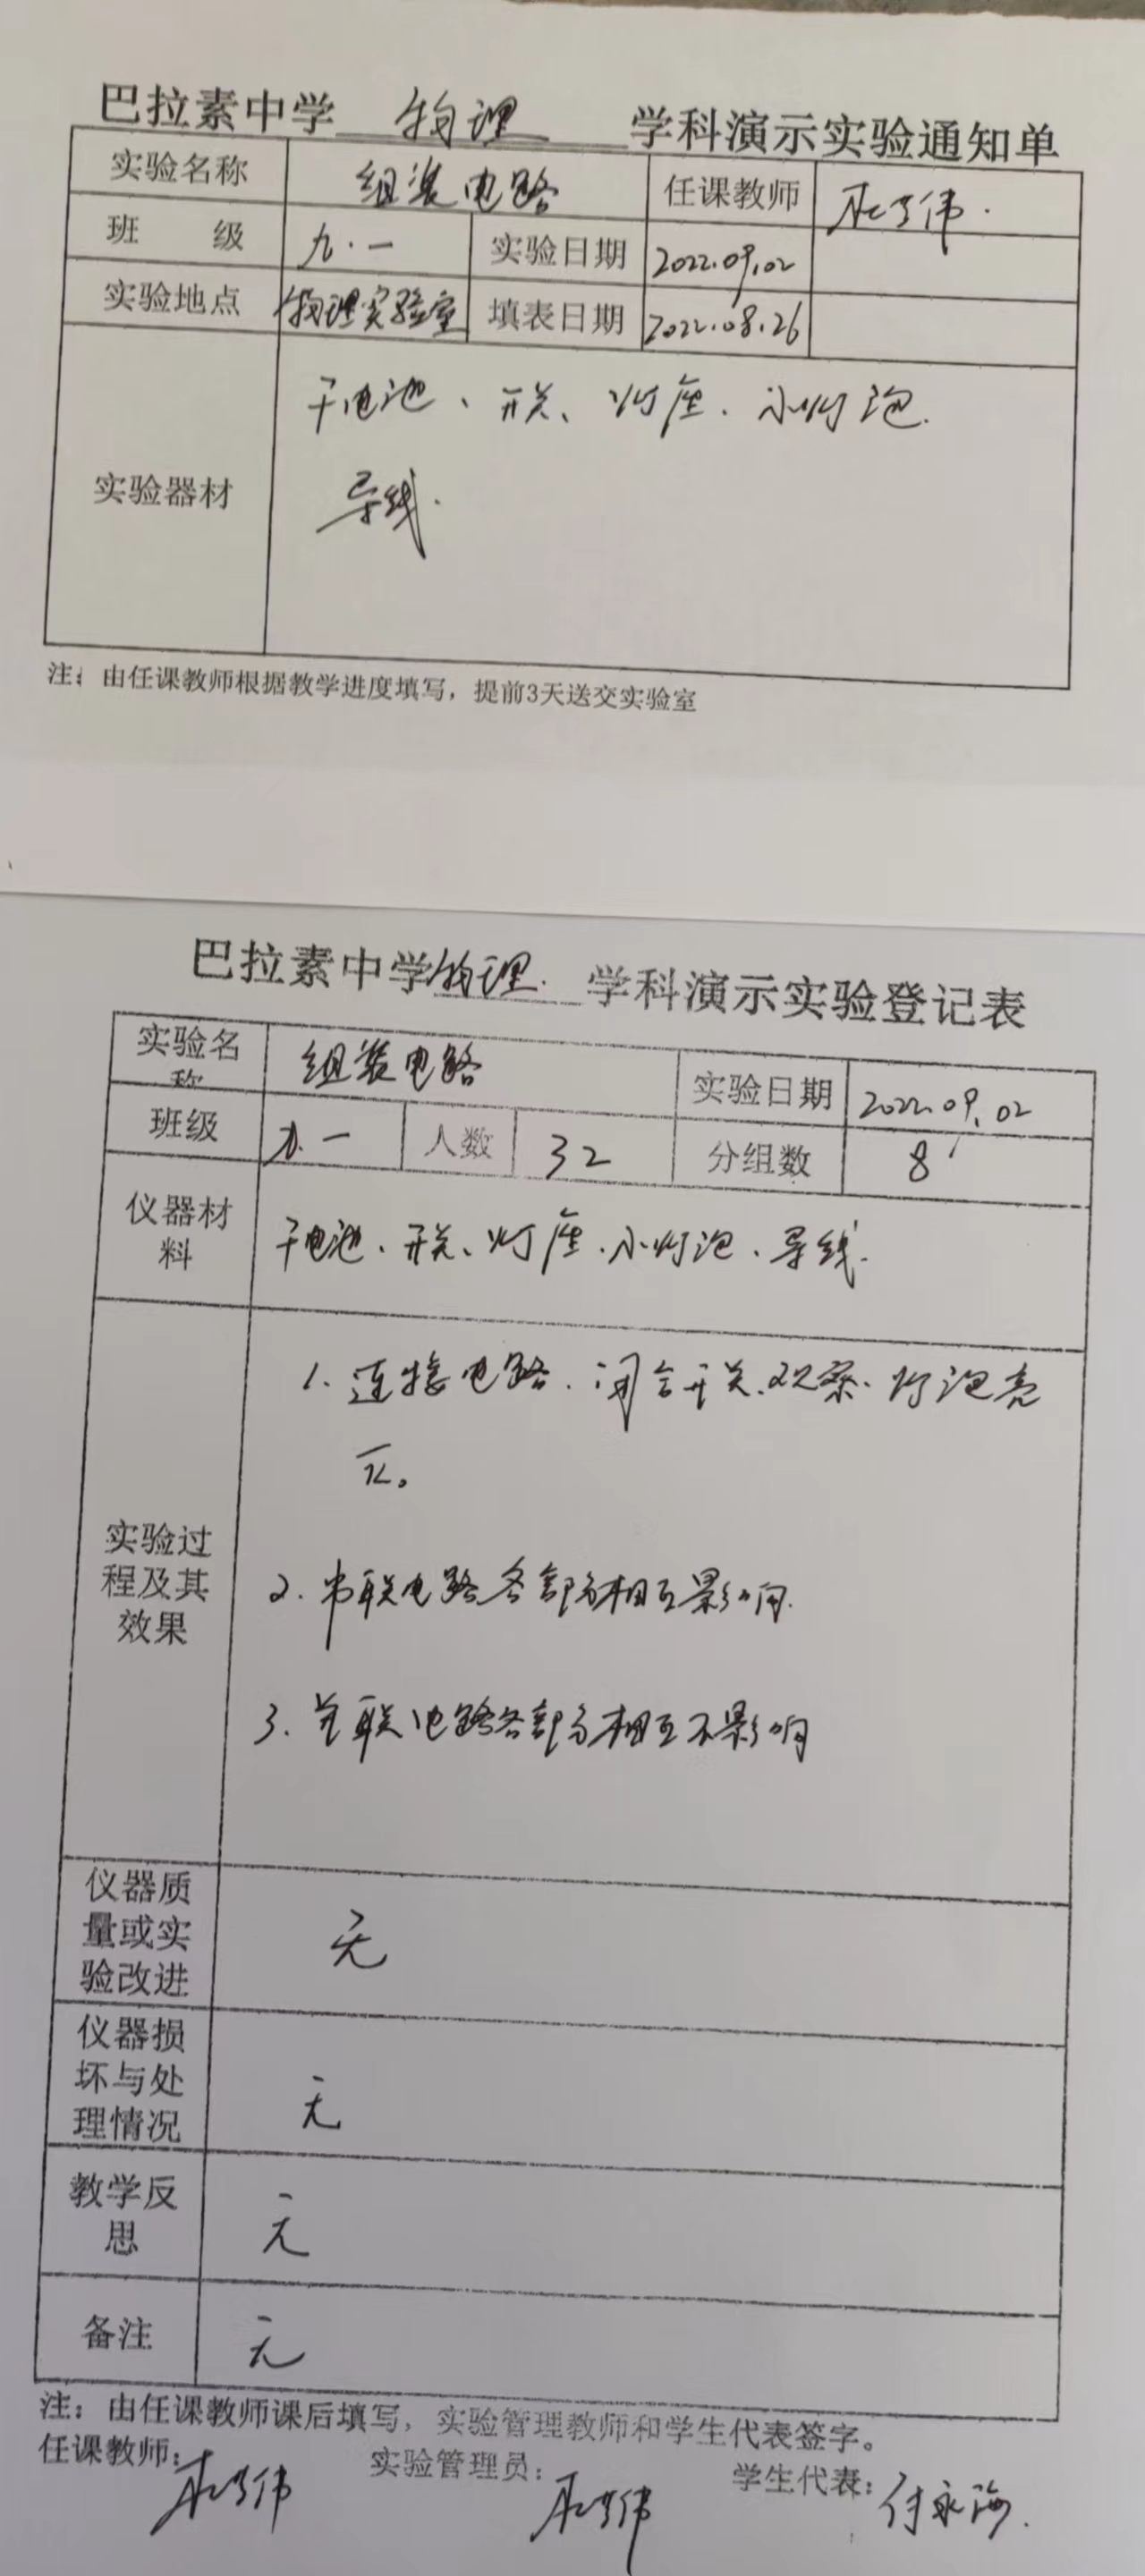 巴拉素中学 物理 学科演示实验通知单
实验名称 组装电路 任课教师
班 级 九.一 实验日期 2022.09.02
实验地点 物理实验室 填表日期 2022.08.26
实验器材 干电池、开关、灯座、小灯泡.
导线.
注：由任课教师根据教学进度填写，提前3天送交实验室
巴拉素中学物理. 学科演示实验登记表
实验名称 组装电路 实验日期 2022.09.02
班级 九.一 人数 32 分组数 8
仪器材料 干电池、开关、灯座、小灯泡、导线.
实验过程及其效果
1. 连接电路.闭合开关.观察.灯泡亮
灭。
2. 串联电路各部分相互影响.
3. 并联电路各部分相互不影响
仪器质量或实验改进 无
仪器损坏与处理情况 无
教学反思 无
备注 无
注：由任课教师课后填写，实验管理教师和学生代表签字。
任课教师： 实验管理员： 学生代表：付永海.